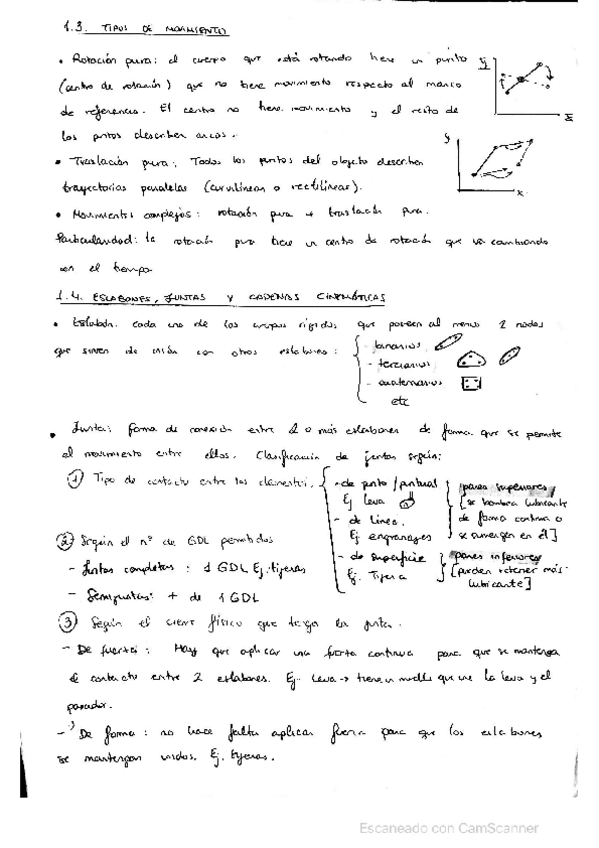 1.3. TIPOS DE MOVIMIENTO
• Rotación pura: el cuerpo que está rotando tiene un punto
(centro de rotación) que no tiene movimiento respecto al marco
de referencia. El centro no tiene movimiento y el resto de
los ptos describen arcos.
y
x
• Traslación pura: Todos los puntos del objeto describen
trayectorias paralelas (curvilíneas o rectilíneas).
y
x
• Movimientos complejos: rotación pura + traslación pura.
Particularidad: la rotación pura tiene un centro de rotación que va cambiando
en el tiempo
1.4. ESLABONES, JUNTAS Y CADENAS CINEMÁTICAS
• Eslabón: cada uno de los cuerpos rígidos que poseen al menos 2 nodos
que sirven de unión con otros eslabones:
- binarios
- terciarios
- cuaternarios
etc
• Junta: forma de conexión entre 2 o más eslabones de forma que se permite
el movimiento entre ellos. Clasificación de juntas según:
① Tipo de contacto entre los elementos.
- de pto/puntual
Ej leva
- de línea.
Ej engranajes
pares superiores
[se bombea lubricante
de forma continua o
se sumergen en él]
- de superficie
Ej. Tijera
pares inferiores
[pueden retener más
lubricante]
② Según el nº de GDL permitidos
- Juntas completas: 1 GDL Ej. tijeras
- Semijuntas: + de 1 GDL
③ Según el cierre físico que tenga la junta.
- De fuerza: Hay que aplicar una fuerza continua para que se mantenga
el contacto entre 2 eslabones. Ej. Leva → tiene un muelle que une la leva y el
- De forma: no hace falta aplicar fuerza para que los eslabones
se mantengan unidos. Ej. tijeras.
Escaneado con CamScanner